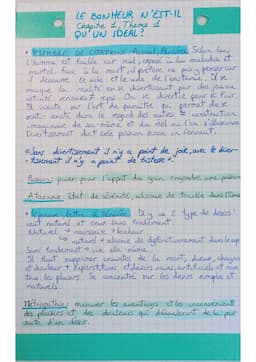 LE BONHEUR N'EST-IL
Chapitre 1, Thème 1
QU'UN IDEAL?
• EXEMPLE DE CITATIONS: Pascal, Pensées. Selon lui,
L'homme est faible car seul, exposé à la maladie et
mortel. Face à la mort, il préfère ne pas y penser car
il découvre le vide et le de l'existence. Il se
masque la réalité en se divertissant par des jeux,
activité repos. On se divertit pour le fuir.
Il insiste sur l'art de paraître qui permet de se
sentir exister dans le regard des autres =
imaginaire de soi même et du réel où l'on s'illusionne
Divertissement doit créer passion sinon on s'ennuit.
"Sans divertissement il n'y a point de joie, avec le diver-
tissement il n'y a point de tristesse".
Passion: jouer pour l'appât du gain engendre une passion
Ataraxie: état de sérénité, absence de trouble dans l'âme
• Épicure, Lettre à Ménécée: Il y a 2 type de désirs:
naturel et sans fondement.
Naturel nécessaire bonheur
naturel = absence de
Sans fondement = 
Il faut supprimer craintes de la mort, dieux, chagrin
et douleur + superstitions et désirs vains, artificiels et non
tous les plaisirs. Se concentrer sur les désirs simples et
naturels.
Métriopathie: mesurer les avantages et les inconvénients
des plaisirs et des douleurs qui découleront de la pour-
suite d'un désir.